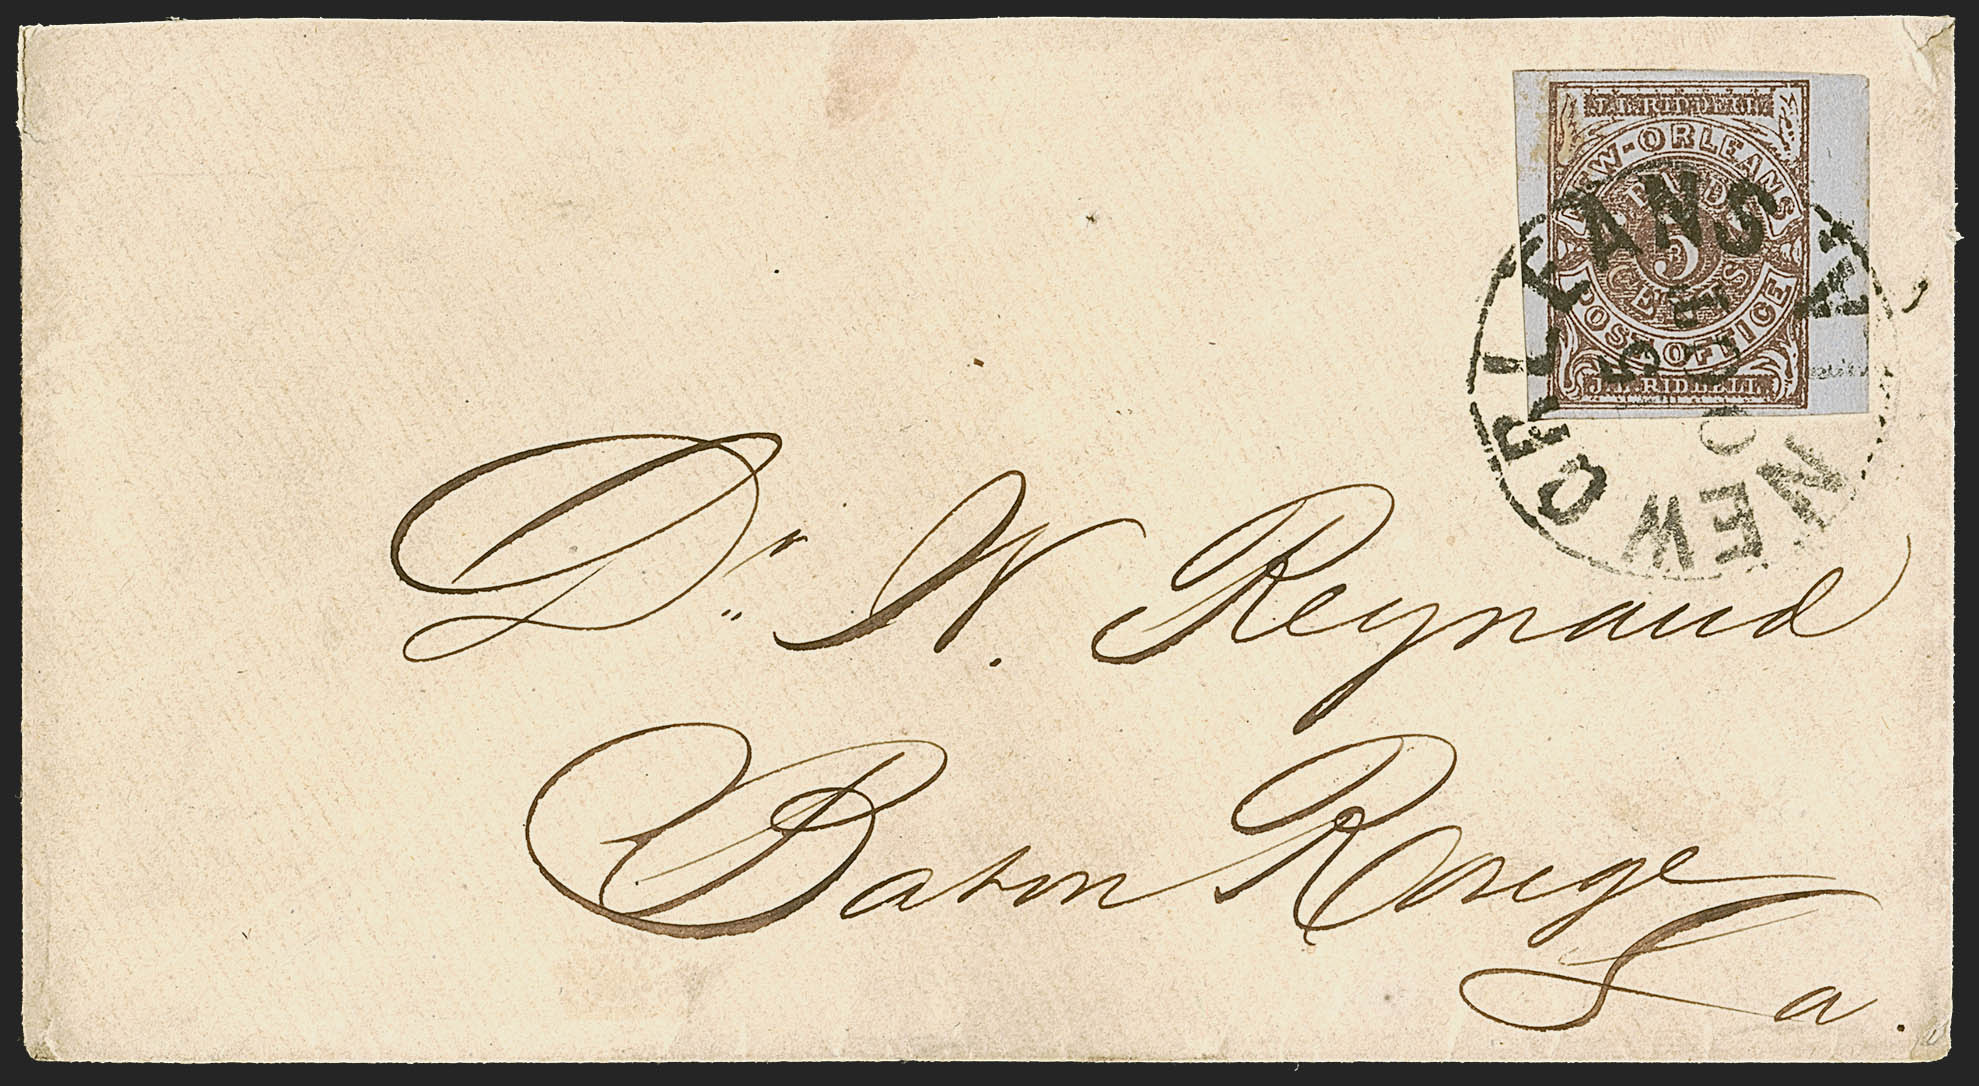 J.L.RIDDELL
NEW-ORLEANS
PAID
5
CENTS
POST OFFICE
J.L.RIDDELL
NEW ORLEANS LA
Dr. W. Reynaud
Baton Rouge
La.